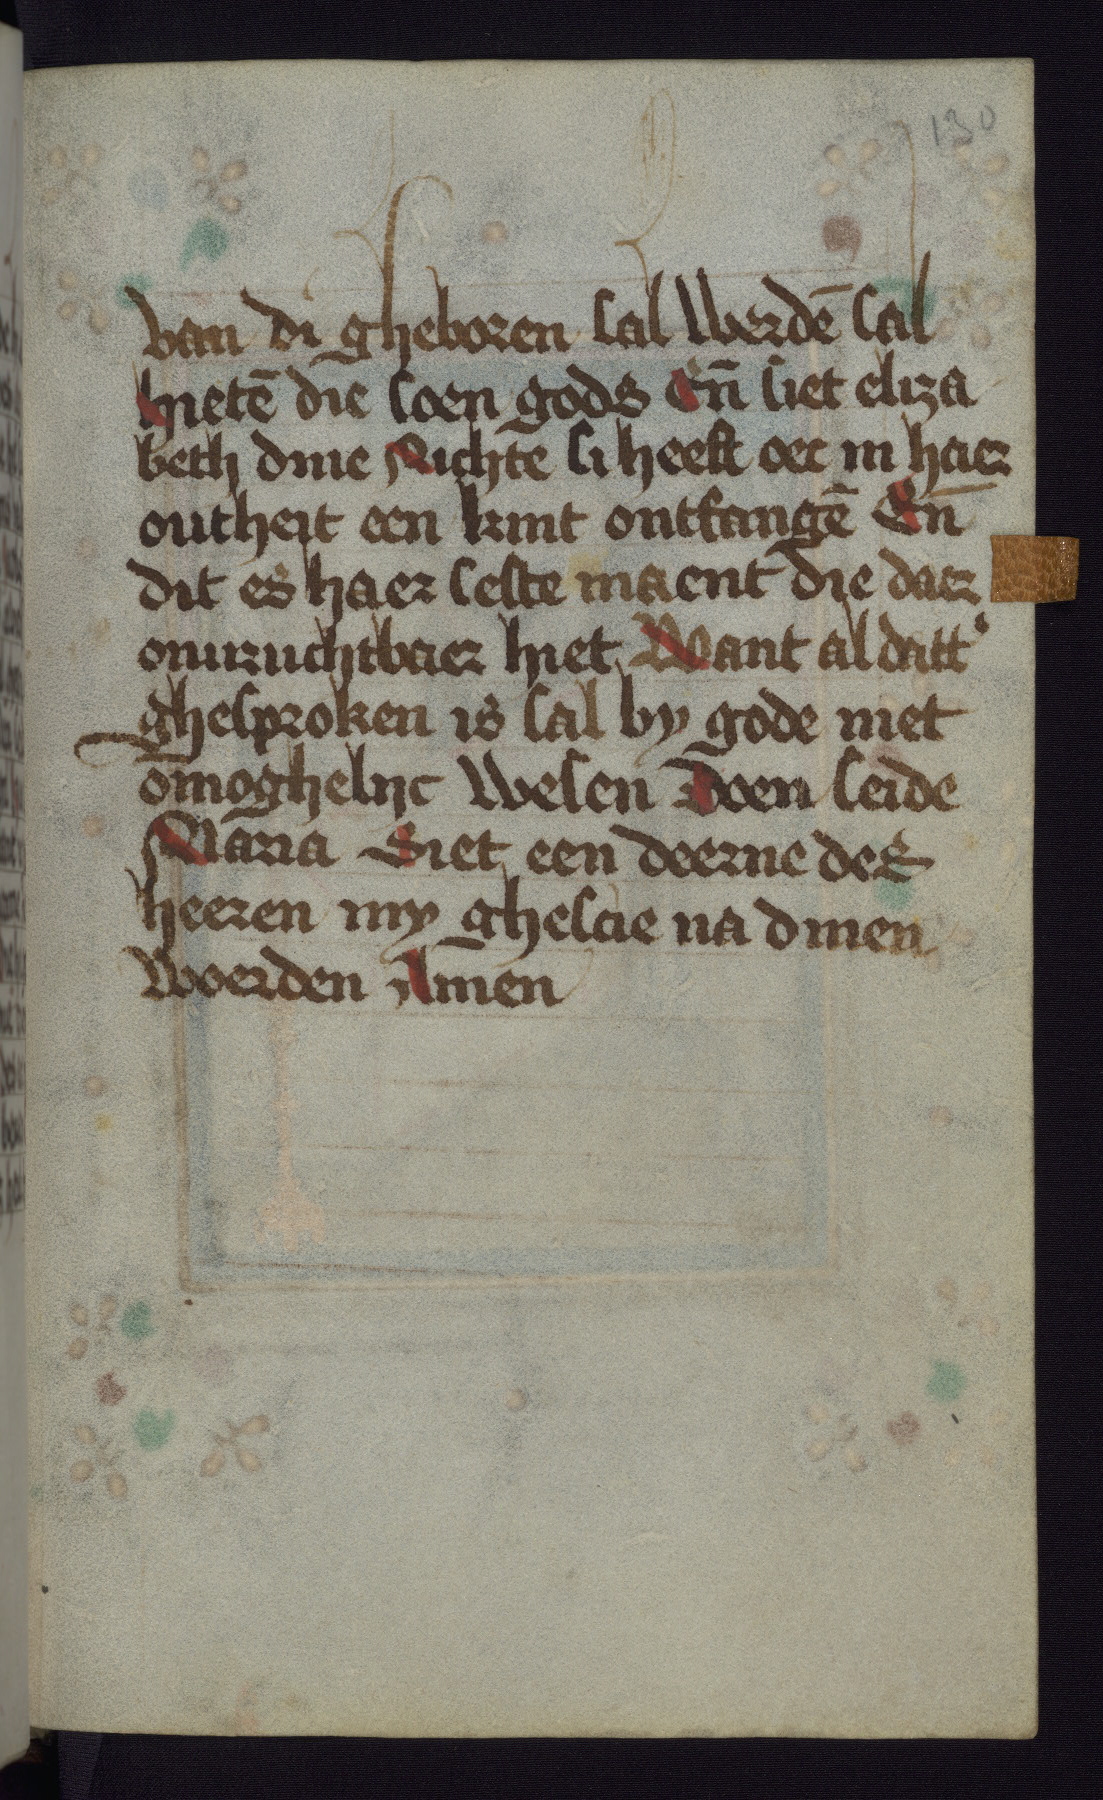 130
van di gheboren sal werdē sal
hietē die soen gods En̄ siet eliza
beth dine Nichte si heeft oec in haer
outheit een kint ontfangē En̄
dit es haer seste maent die daer
onuruchtbaer hiet Want al datt'
ghesproken is sal by gode niet
ōmoghelijc wesen Doen seide
Maria Siet een deerne des
heeren my ghescie na dinen
woerden Amen